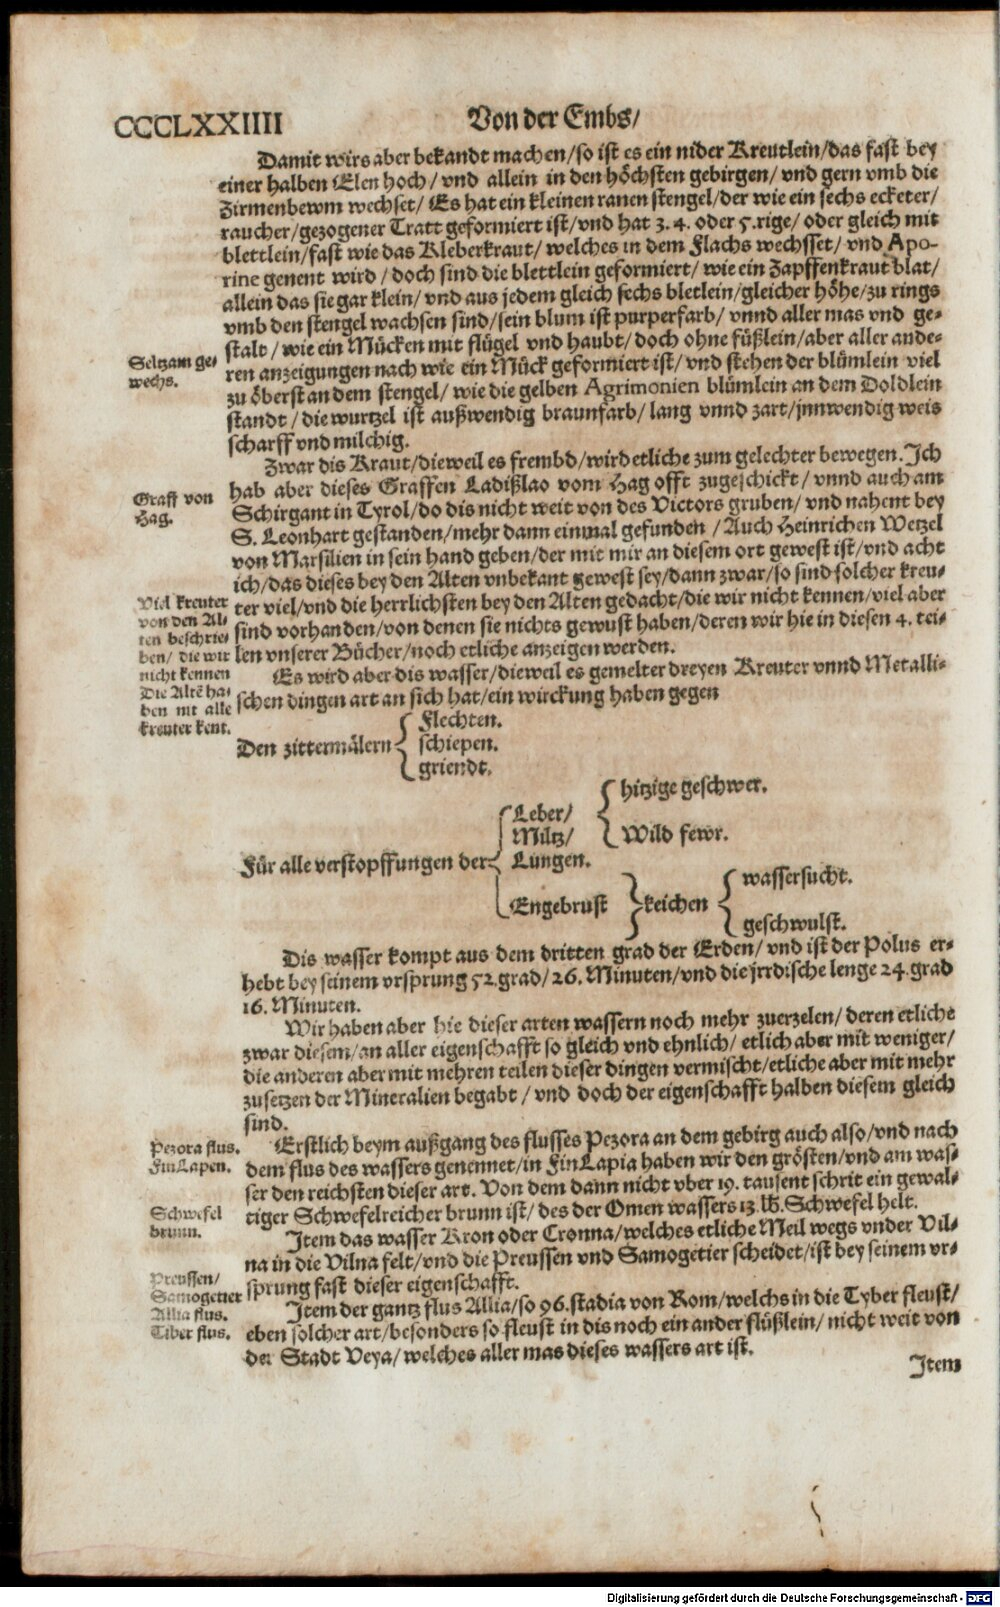 CCCCLXXIIII
Von der Embs/
Damit wirs aber bekandt machen/so ist es ein nider Kreutlein/das fast bey
einer halben Elen hoch/ vnd allein in den höchsten gebirgen/ vnd gern vmb die
Zirmenbewm wechset/ Es hat ein kleinen ranen stengel/der wie ein sechs ecketer/
raucher/gezogener Tratt geformiert ist/vnd hat 3. 4. oder 5.rige/ oder gleich mit
blettlein/fast wie das Kleberkraut/ welches in dem Flachs wechsset/ vnd Apo-
rine genent wird/ doch sind die blettlein geformiert/ wie ein Zapffenkraut blat/
allein das sie gar klein/ vnd aus jedem gleich sechs bletlein/gleicher höhe/zu rings
vmb den stengel wachsen sind/sein blum ist purperfarb/ vnnd aller mas vnd ge-
stalt/ wie ein Mücken mit flügel vnd haubt/ doch ohne füßlein/aber aller ande-
ren anzeigungen nach wie ein Mück geformiert ist/ vnd stehen der blümlein viel
zu öberst an dem stengel/ wie die gelben Agrimonien blümlein an dem Doldlein
standt/ die wurtzel ist außwendig braunfarb/ lang vnnd zart/jnnwendig weis
scharff vnd milchig.
Seltzam ge-
wechs.
Zwar dis Kraut/dieweil es frembd/wird etliche zum gelechter bewegen. Ich
hab aber dieses Graffen Ladißlao vom Hag offt zugeschickt/ vnnd auch am
Schirgant in Tyrol/do dis nicht weit von des Victors gruben/ vnd nahent bey
S. Leonhart gestanden/mehr dann einmal gefunden/ Auch Heinrichen Wetzel
von Marsilien in sein hand geben/der mit mir an diesem ort gewest ist/vnd acht
ich/das dieses bey den Alten vnbekant gewest sey/dann zwar/so sind solcher kreu-
ter viel/vnd die herrlichsten bey den Alten gedacht/die wir nicht kennen/viel aber
sind vorhanden/von denen sie nichts gewust haben/deren wir hie in diesen 4. tei-
len vnserer Bücher/noch etliche anzeigen werden.
Graff von
Hag.
Viel kreuter
von den Al-
ten beschrie-
ben/ die wir
nicht kennen
Die Altē ha-
ben nit alle
kreuter kent.
Es wird aber dis wasser/dieweil es gemelter dreyen Kreuter vnnd Metalli-
schen dingen art an sich hat/ein wirckung haben gegen
Den zittermälern
Flechten.
schiepen.
griendt.
Für alle verstopffungen der
Leber/
Miltz/
Lungen.
Engebrust
hitzige geschwer.
Wild fewr.
keichen
wassersucht.
geschwulst.
Dis wasser kompt aus dem dritten grad der Erden/ vnd ist der Polus er-
hebt bey seinem vrsprung 52.grad/26. Minuten/vnd die jrrdische lenge 24.grad
16. Minuten.
Wir haben aber hie dieser arten wassern noch mehr zuerzelen/ deren etliche
zwar diesem/an aller eigenschafft so gleich vnd ehnlich/ etlich aber mit weniger/
die anderen aber mit mehren teilen dieser dingen vermischt/etliche aber mit mehr
zusetzen der Mineralien begabt/ vnd doch der eigenschafft halben diesem gleich
sind.
Erstlich beym außgang des flusses Pezora an dem gebirg auch also/vnd nach
dem flus des wassers genennet/in FinLapia haben wir den grösten/vnd am was-
ser den reichsten dieser art. Von dem dann nicht vber 19. tausent schrit ein gewal-
tiger Schwefelreicher brunn ist/ des der Omen wassers 13. ℔. Schwefel helt.
Pezora flus.
FinLapen.
Schwefel
brunn.
Item das wasser Kron oder Cronna/welches etliche Meil wegs vnder Vil-
na in die Vilna felt/vnd die Preussen vnd Samogetier scheidet/ist bey seinem vr-
sprung fast dieser eigenschafft.
Preussen/
Samogetier
Item der gantz flus Allia/so 96.stadia von Rom/welchs in die Tyber fleust/
eben solcher art/besonders so fleust in dis noch ein ander flüßlein/ nicht weit von
der Stadt Veya/ welches aller mas dieses wassers art ist.
Allia flus.
Tiber flus.
Item
Digitalisierung gefördert durch die Deutsche Forschungsgemeinschaft - DFG